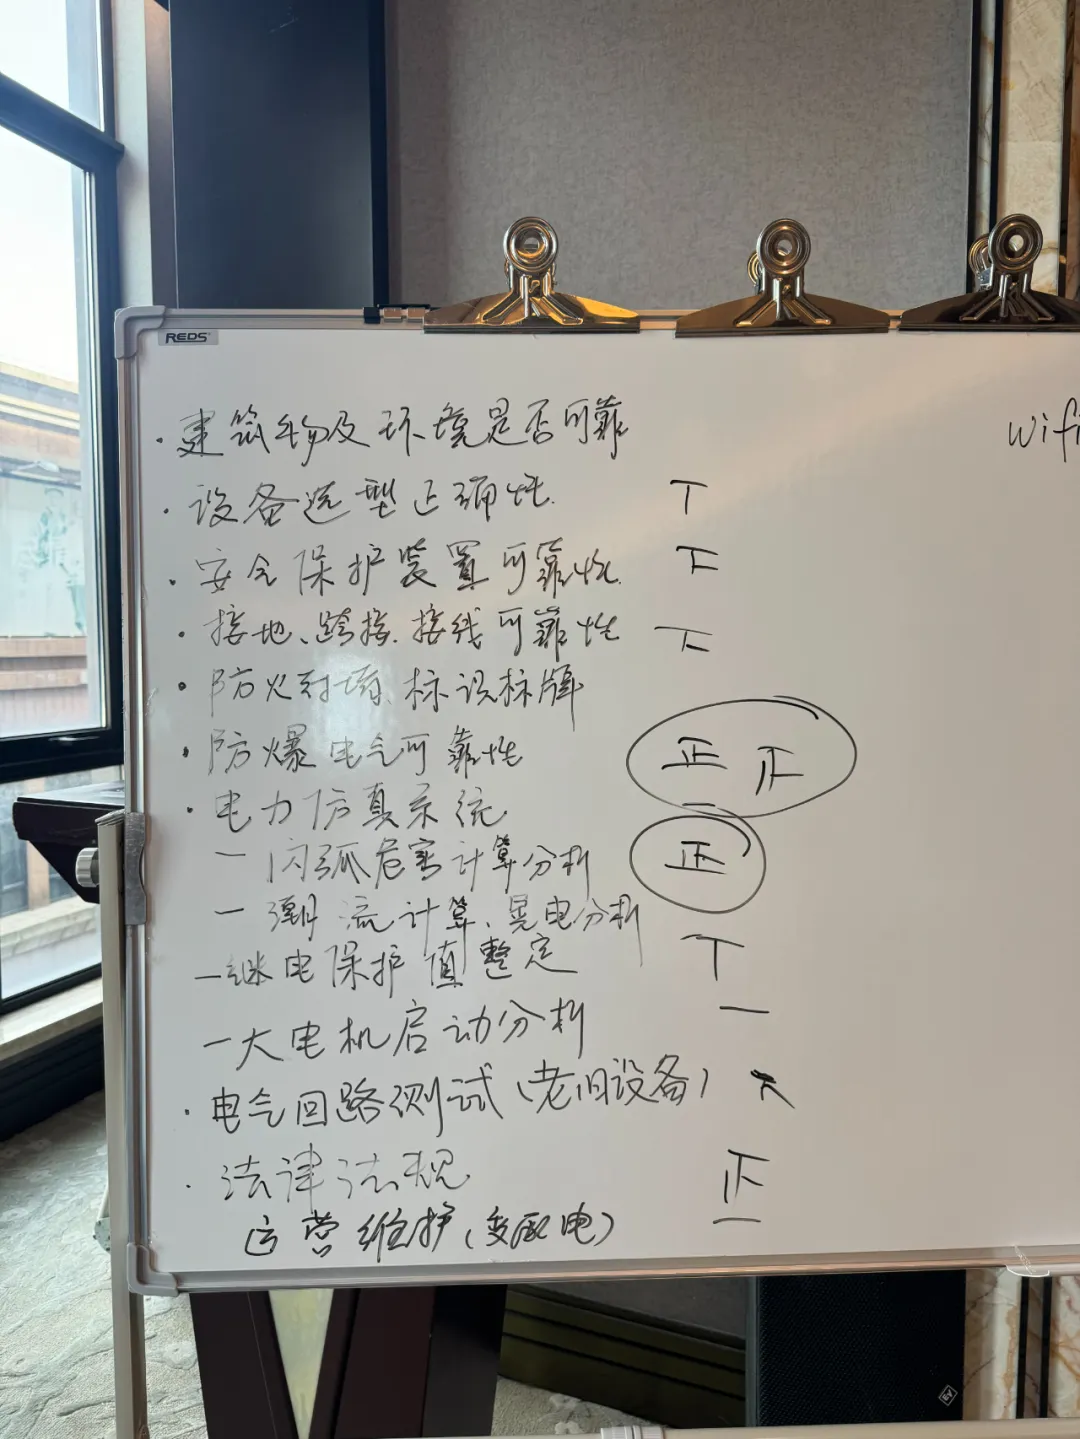 REDS
wifi
· 建筑物及环境是否可靠
· 设备选型正确性. T
· 安全保护装置可靠性. 下
· 接地、跨接.接线可靠性 丅
· 防火封堵.标识标牌
· 防爆电气可靠性 正 正
· 电力仿真系统
一 闪弧危害计算分析 正
一 潮流计算、晃电分析
一继电保护值整定 T
一大电机启动分析 一
· 电气回路测试(老旧设备)
· 法律法规. 正
运营维护(变配电) 一